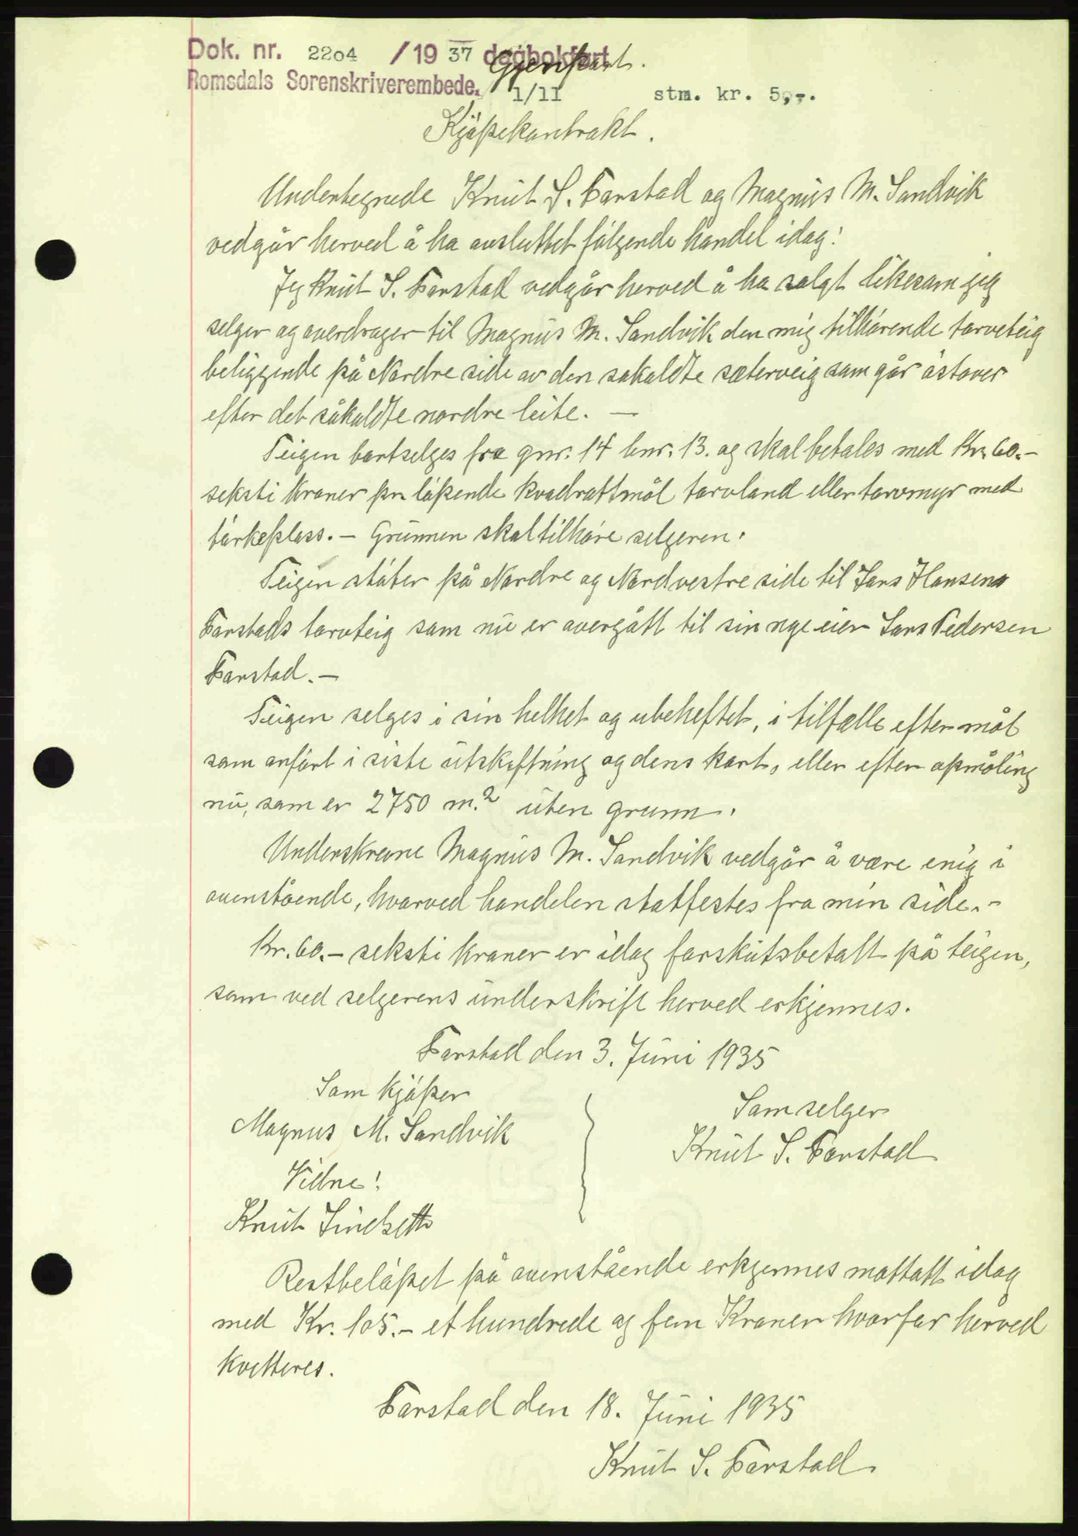 Dok. nr. 2204 /19 37 dagbokført
Gjenpart.
Romsdals Sorenskriverembede. 1/11 stm. kr. 5,-.
Kjøpekontrakt.
Undertegnede Knut S. Farstad og Magnus M. Sandvik
vedgår herved å ha avsluttet følgende handel idag:
Jeg Knut S. Farstad vedgår herved å ha solgt likesom jeg
selger og overdrager til Magnus M. Sandvik den mig tilhørende torvteig
beliggende på Nordre side av den sakaldte sæterveig som går østover
efter det såkaldte nordre leite. —
Teigen bortselges fra gnr. 14 bnr. 13. og skal betales med Kr. 60.-
seksti kroner pr. løpende kvadrattmål torvland eller torvmyr med
tørkeplass. — Grunnen skal tilhøre selgeren.
Teigen støter på Nordre og Nordvestre side til Lars Hansens
Farstads torvteig som nu er overgått til sin nye eier Lars Pedersen
Farstad. —
Teigen selges i sin helhet og ubeheftet, i tilfælle efter mål
som anført i siste utskiftning og dens kart, eller efter opmåling
nu, som er 2750 m.2 uten grunn.
Underskrevne Magnus M. Sandvik vedgår å være enig i
ovenstående, hvorved handelen statfestes fra min side. -
Kr. 60. - seksti kroner er idag forskutsbetalt på teigen,
som ved selgerens underskrift herved erkjennes.
Farstad den 3. Juni 1935
Som kjøper
Magnus M. Sandvik
Vidne:
Som selger
Knut S. Farstad
Restbeløpet på ovenstående erkjennes mottatt idag
med Kr. 105. - et hundrede og fem Kroner hvorfor herved
kvitteres.
Farstad den 18. Juni 1935
Knut S. Farstad